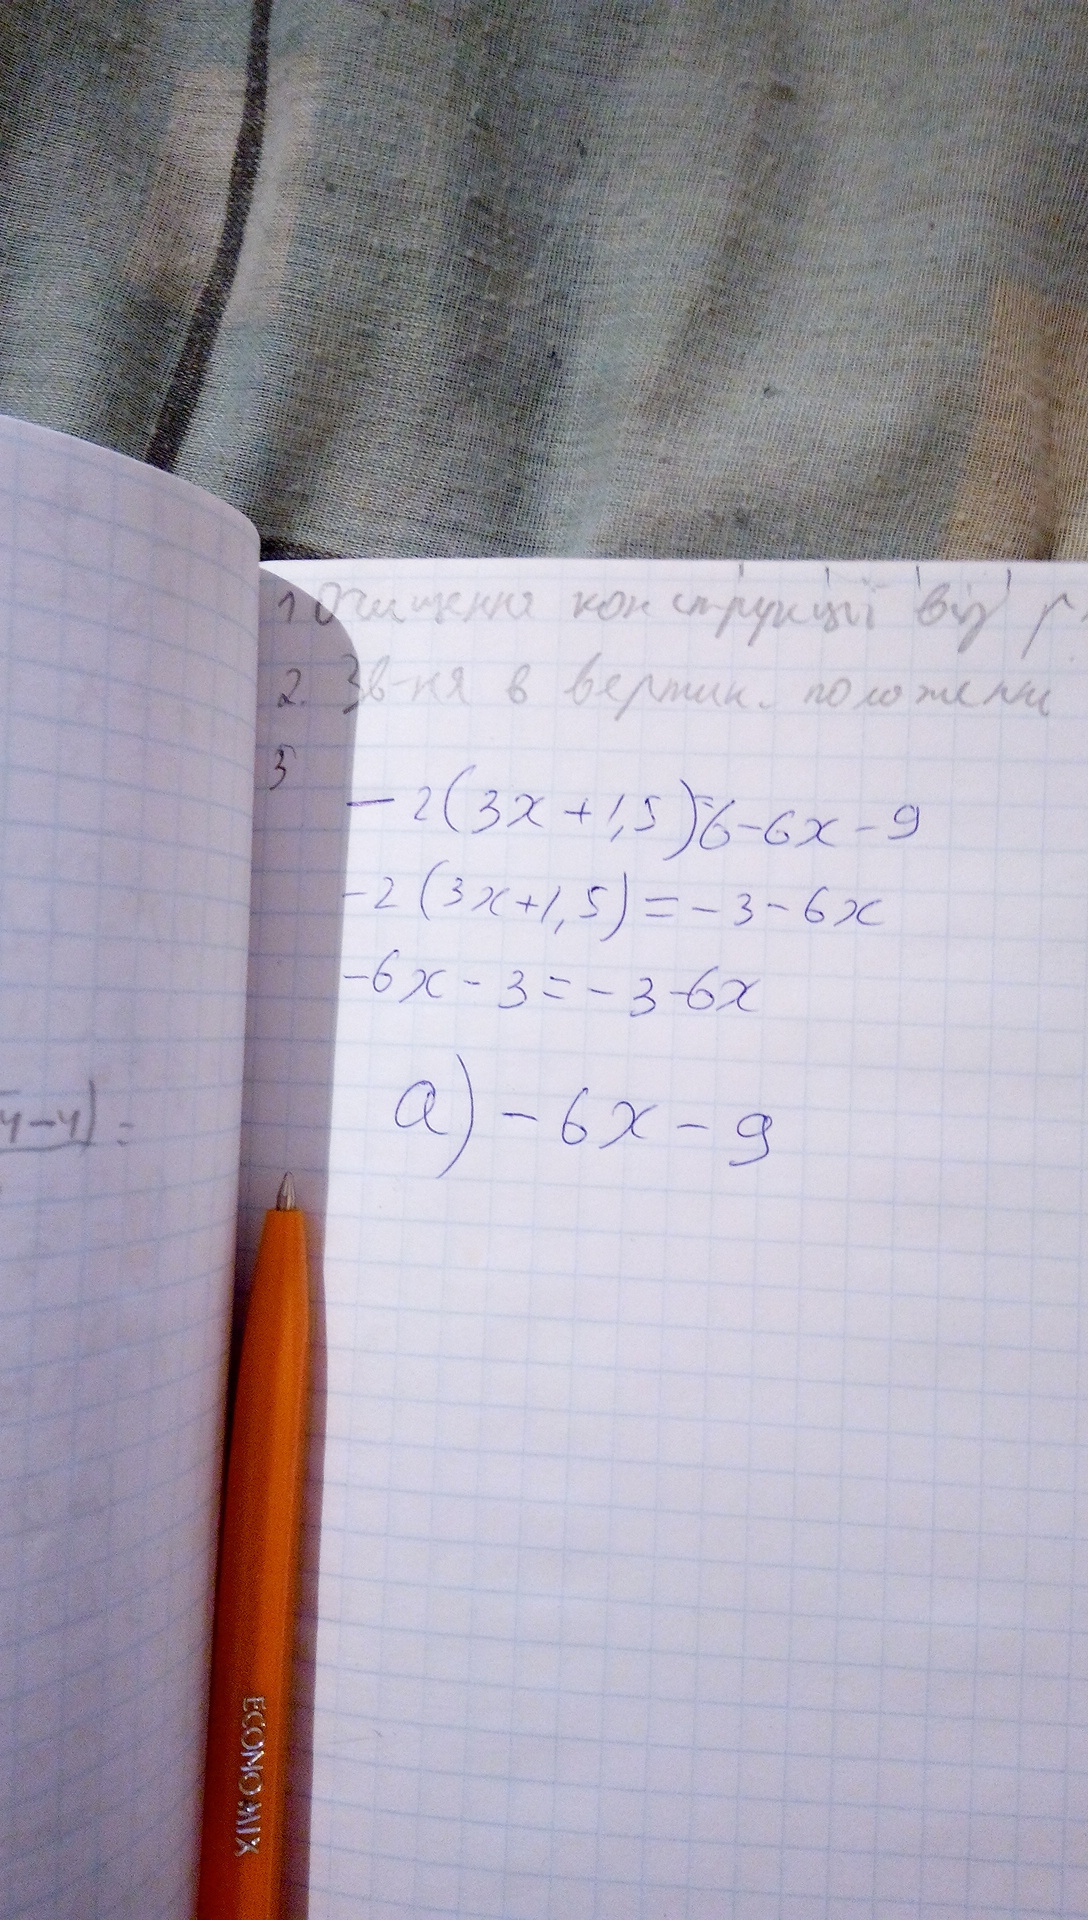 1 Очищення конструкції від
2. Зв-ня в вертик. положенні
3
-2(3x+1,5)=6-6x-9
-2(3x+1,5)=-3-6x
-6x-3=-3-6x
a) -6x-9
y-y) =
ECONOMIX